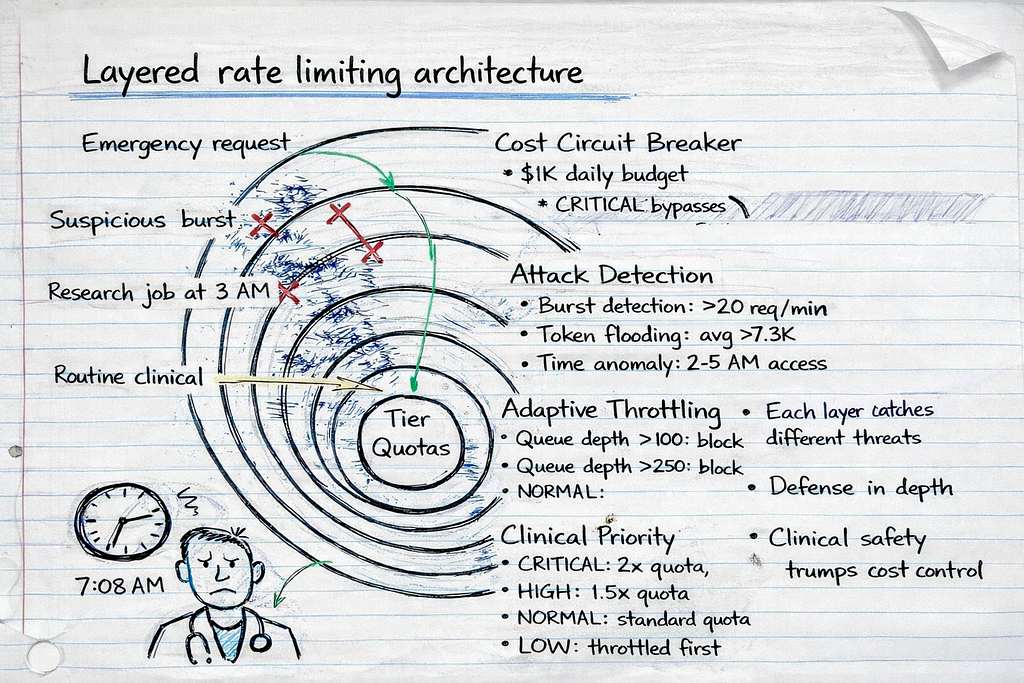 Layered rate limiting architecture
Emergency request
Suspicious burst
Research job at 3 AM
Routine clinical
Tier
Quotas
7:08 AM
Cost Circuit Breaker
• $1K daily budget
* CRITICAL bypasses
Attack Detection
• Burst detection: >20 req/min
• Token flooding: avg >7.3K
• Time anomaly: 2-5 AM access
Adaptive Throttling
• Queue depth >100: block
• Queue depth >250: block
• NORMAL:
Clinical Priority
• CRITICAL: 2x quota,
• HIGH: 1.5x quota
• NORMAL: standard quota
• LOW: throttled first
• Each layer catches
different threats
• Defense in depth
• Clinical safety
trumps cost control